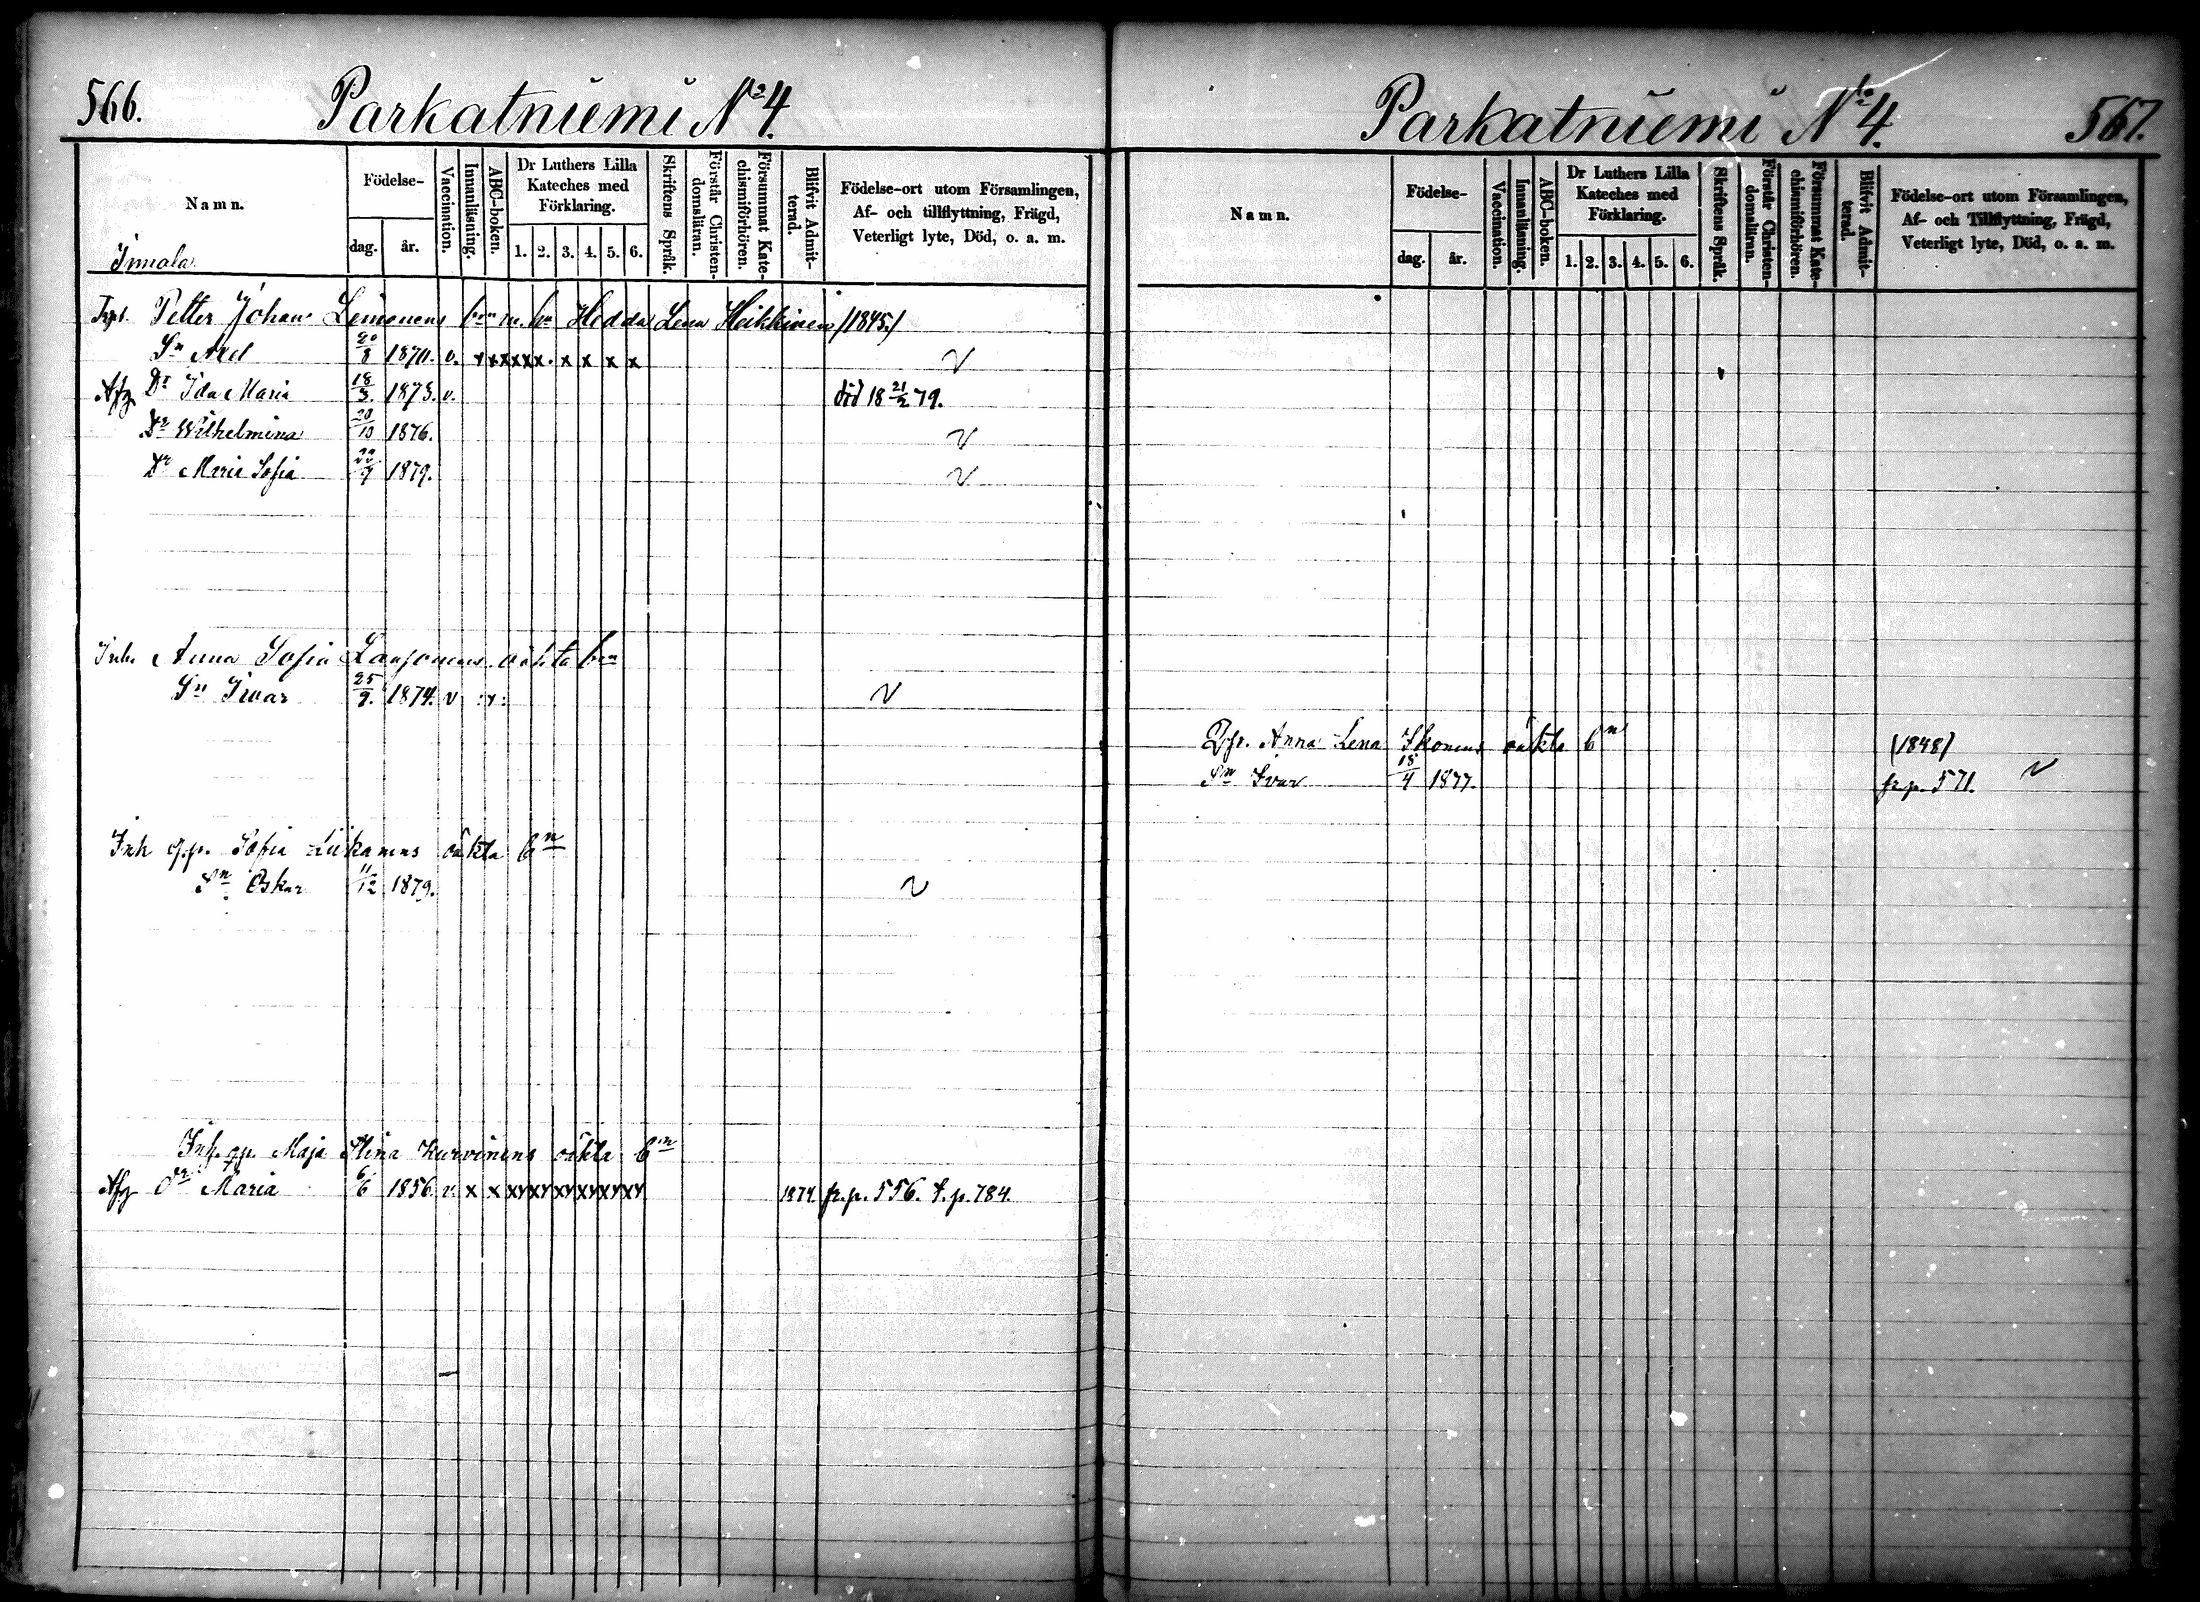 566. Parkatniemi No 4.
Namn. Födelse- Vaccination. Innanläsning. ABC-boken. Dr Luthers Lilla Kateches med Förklaring. Skriftens Språk. Förstår Christendomsläran. Försummat Katechismiförhören. Blifvit Admitterad. Födelse-ort utom Församlingen, Af- och tillflyttning, Frägd, Veterligt lyte, Död, o. a. m.
dag. år. 1. 2. 3. 4. 5. 6.
Immola
Petter Johan Leinonens bn m. h. Hedda Lena Heikkinen /1845./
Sn Axel 20/8 1870. v. x x x x x x x. x x x x v
Afg Dr Ida Maria 18/3. 1873. v. död 18 21/2 79.
Dr Wilhelmina 20/10 1876. v
Dr Maria Sofia 22/9 1879. v
Inh. Anna Sofia oäkta bn
Sn Ivar 25/9. 1874. v :x: v
Inh q.p. Sofia Liikanens oäkta bn
Sn Oskar 11/12 1879. v
Inh. qp. Maja Stina Kurvinens oäkta bn
Afg Dr Maria 6/6 1856 v. x x xy xy xy xy xy xy 1874 fr. p. 556. t. p. 784.
Parkatniemi No 4. 567.
Namn. Födelse- Vaccination. Innanläsning. ABC-boken. Dr Luthers Lilla Kateches med Förklaring. Skriftens Språk. Förstår Christendomsläran. Försummat Katechismiförhören. Blifvit Admitterad. Födelse-ort utom Församlingen, Af- och Tillflyttning, Frägd, Veterligt lyte, Död, o. a. m.
dag. år. 1. 2. 3. 4. 5. 6.
Qp. Anna Lena Ikonens oäkta bn (1848)
Sn Ivar 18/4 1877. fr. p. 571. v